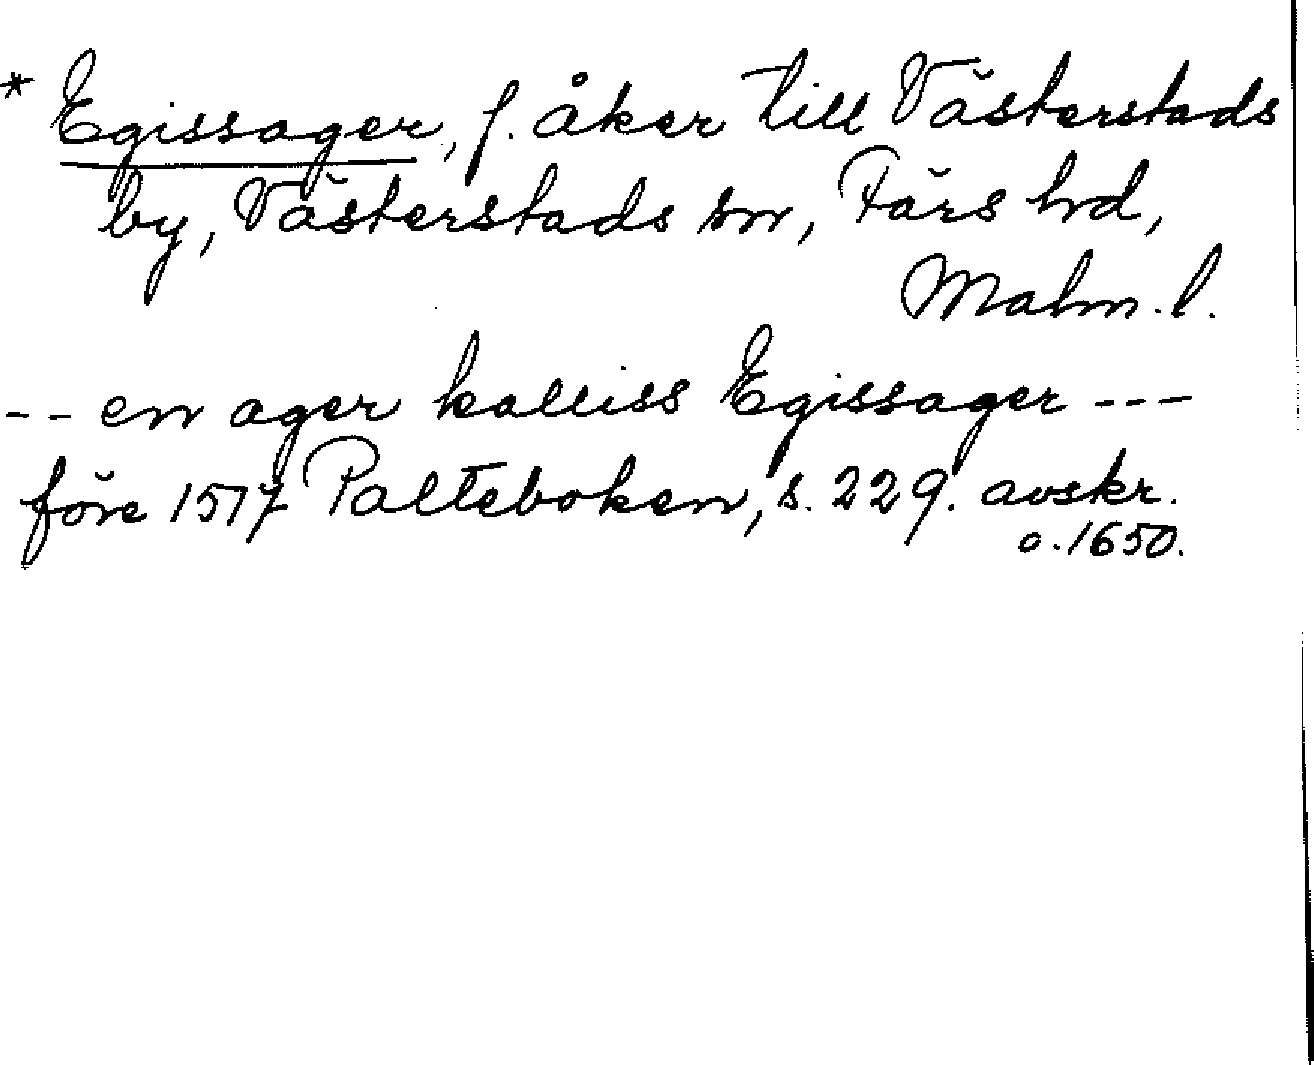 * Egissager, f. åker till Västerstads
by, Västerstads sn, Färs hd,
Malm. l.
-- en ager kalliss Egissager ---
före 1517 Palteboken, s. 229. avskr.
o. 1650.